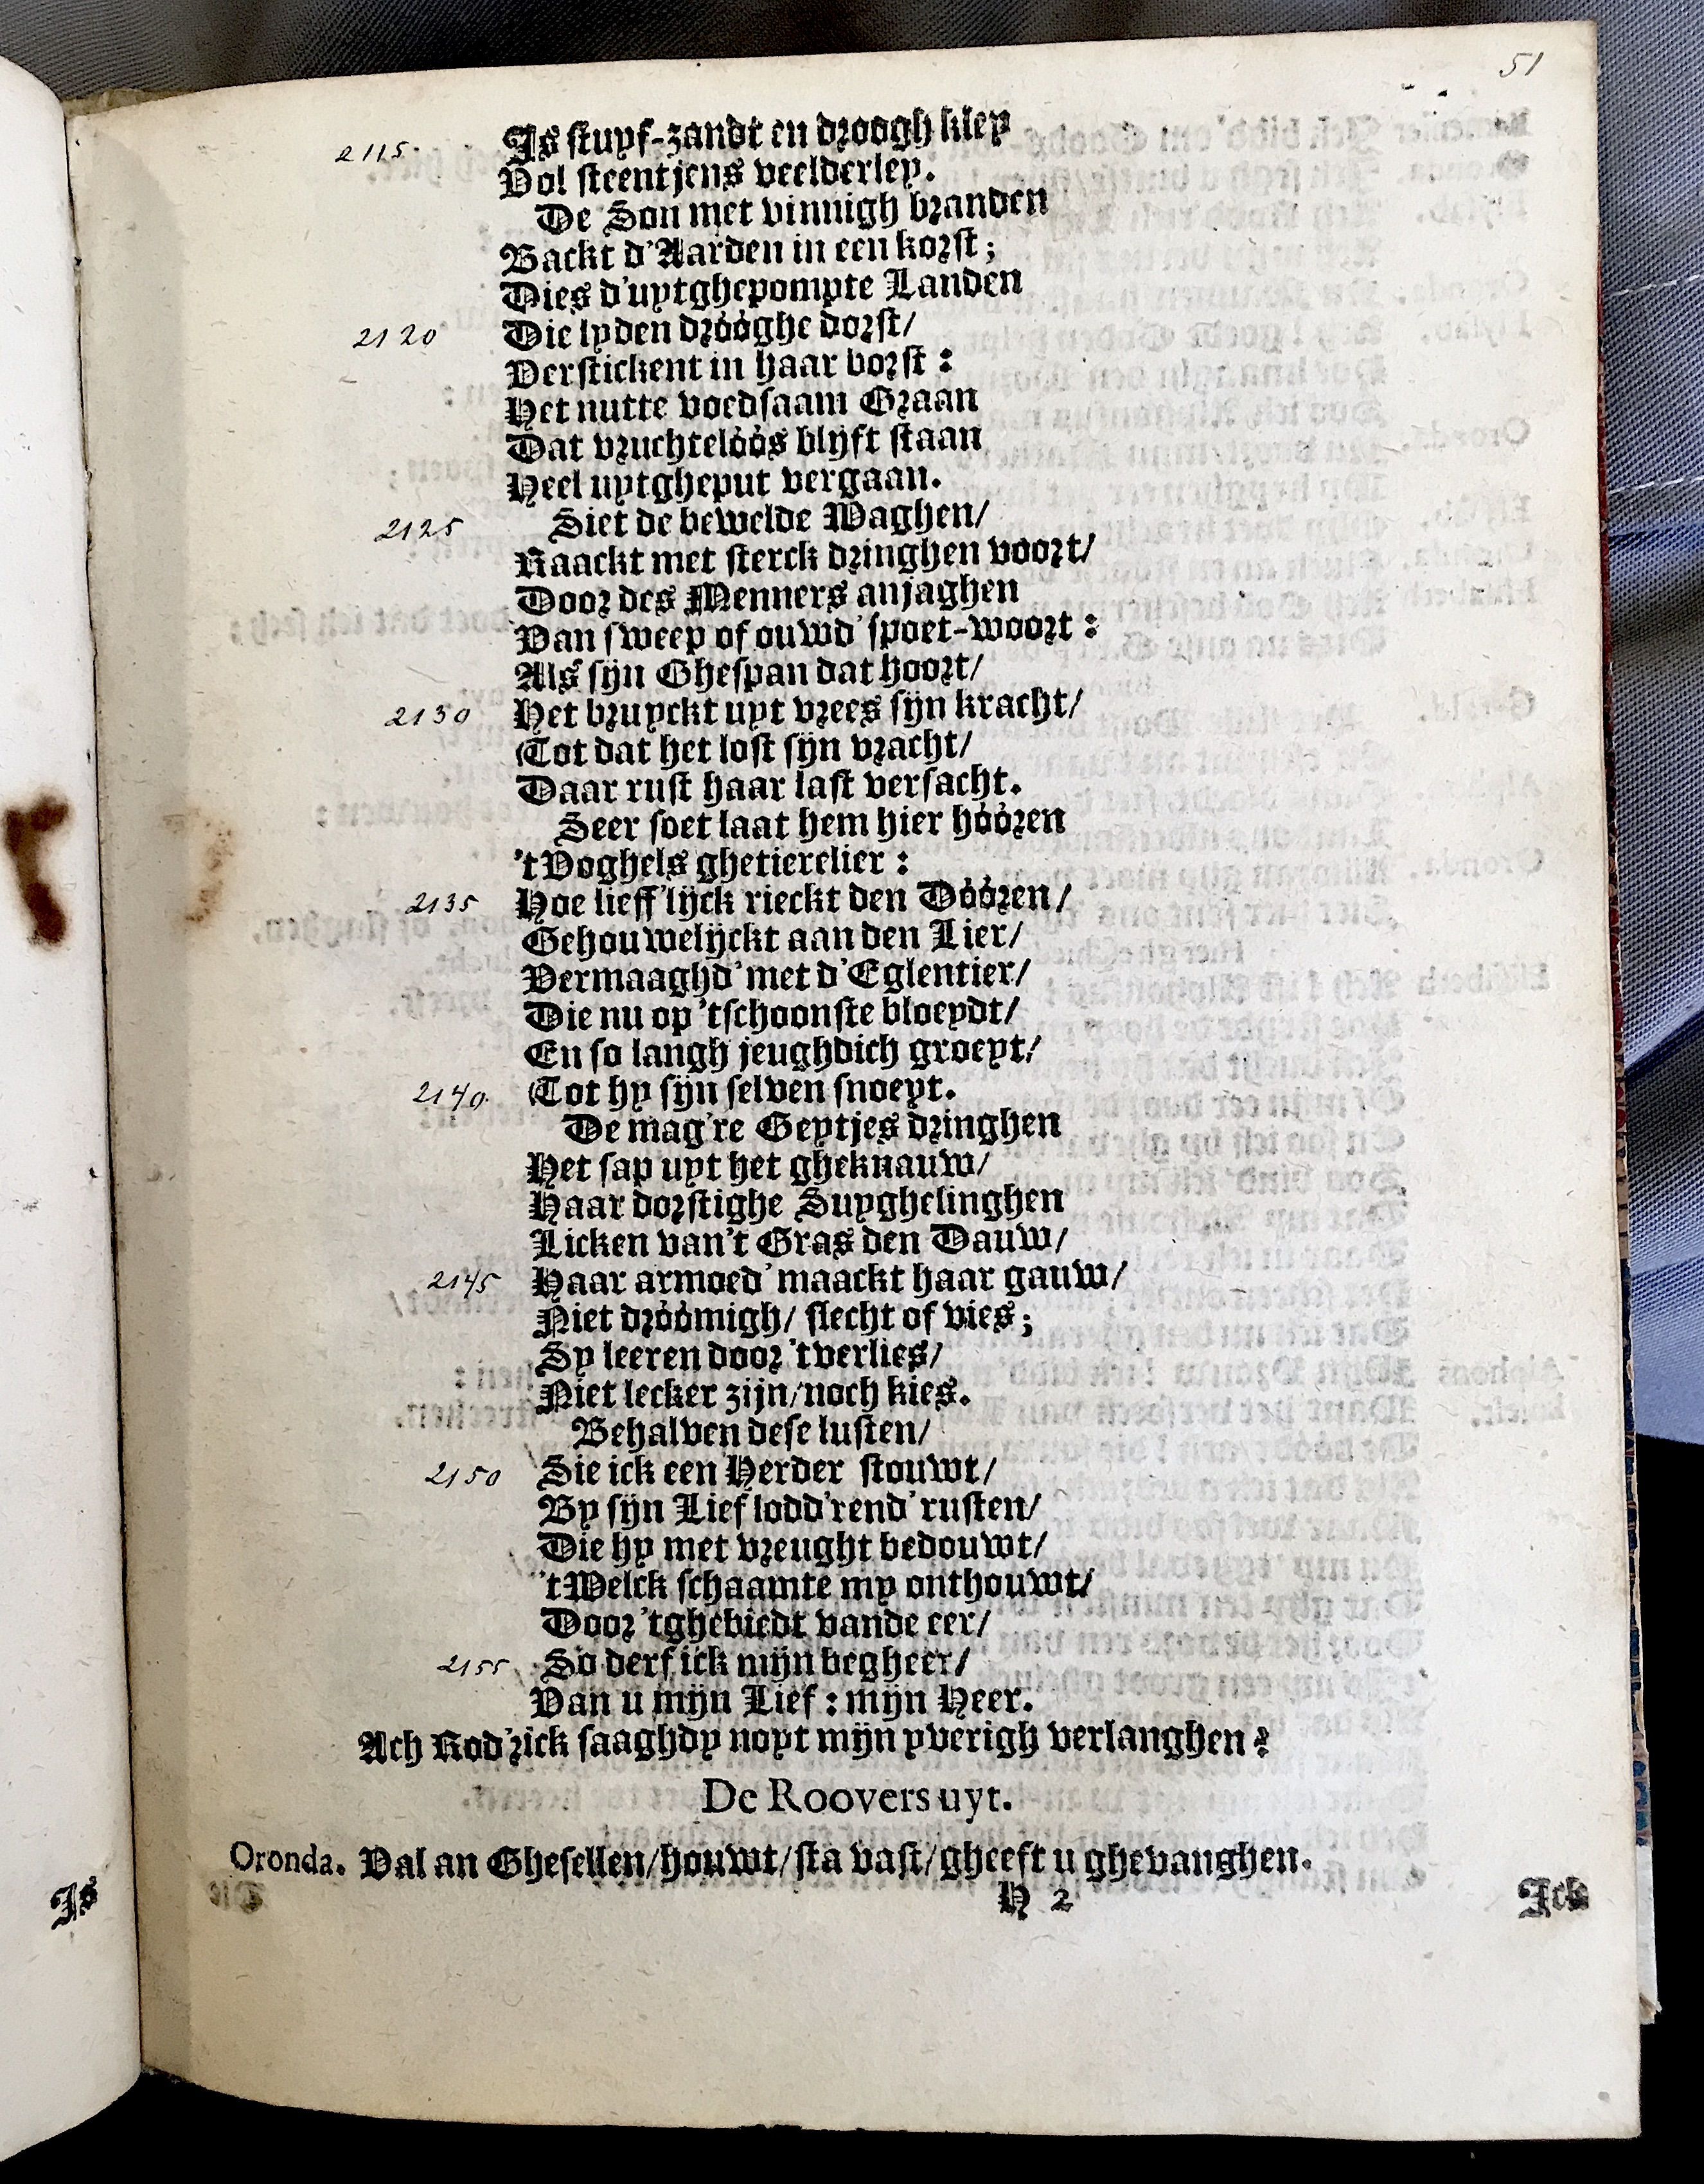 51
2115 Is stuyf-zandt en droogh kley
Vol steentjens veelderley.
De Son met vinnigh branden
Backt d'Aarden in een korst;
Dies d'uytghepompte Landen
2120 Die lyden dróóghe dorst/
Verstickent in haar borst:
Het nutte voedsaam Graan
Dat vruchtelóós blijft staan
Heel uytgheput vergaan.
2125 Siet de bewelde Waghen/
Raackt met sterck dringhen voort/
Door des Menners anjaghen
Van sweep of ouwd'spoet-woort:
Als sijn Ghespan dat hoort/
2130 Het bruyckt uyt vrees sijn kracht/
Tot dat het lost sijn vracht/
Daar rust haar last versacht.
Seer soet laat hem hier hóóren
't Voghels ghetierelier:
2135 Hoe lieff'lijck rieckt den Dóóren/
Gehouwelijckt aan den Lier/
Vermaaghd'met d'Eglentier/
Die nu op 'tschoonste bloeydt/
En so langh jeughdich groeyt/
2140 Tot hy sijn selven snoeyt.
De mag're Geytjes dringhen
Het sap uyt het gheknauw/
Haar dorstighe Suyghelinghen
Licken van't Gras den Dauw/
2145 Haar armoed'maackt haar gauw/
Niet dróómigh/ slecht of vies;
Sy leeren door 'tverlies/
Niet lecker zijn/noch kies.
Behalven dese lusten/
2150 Sie ick een Herder stouwt/
By sijn Lief lodd'rend'rusten/
Die hy met vreught bedouwt/
't Welck schaamte my onthouwt/
Door 'tghebiedt vande eer/
2155 So derf ick mijn begheer/
Van u mijn Lief: mijn Heer.
Ach Rod'rick saaghdy noyt mijn yverigh verlanghen?
De Roovers uyt.
Oronda. Val an Ghesellen/houwt/sta vast/gheeft u ghevanghen.
H 2 Ick
Is